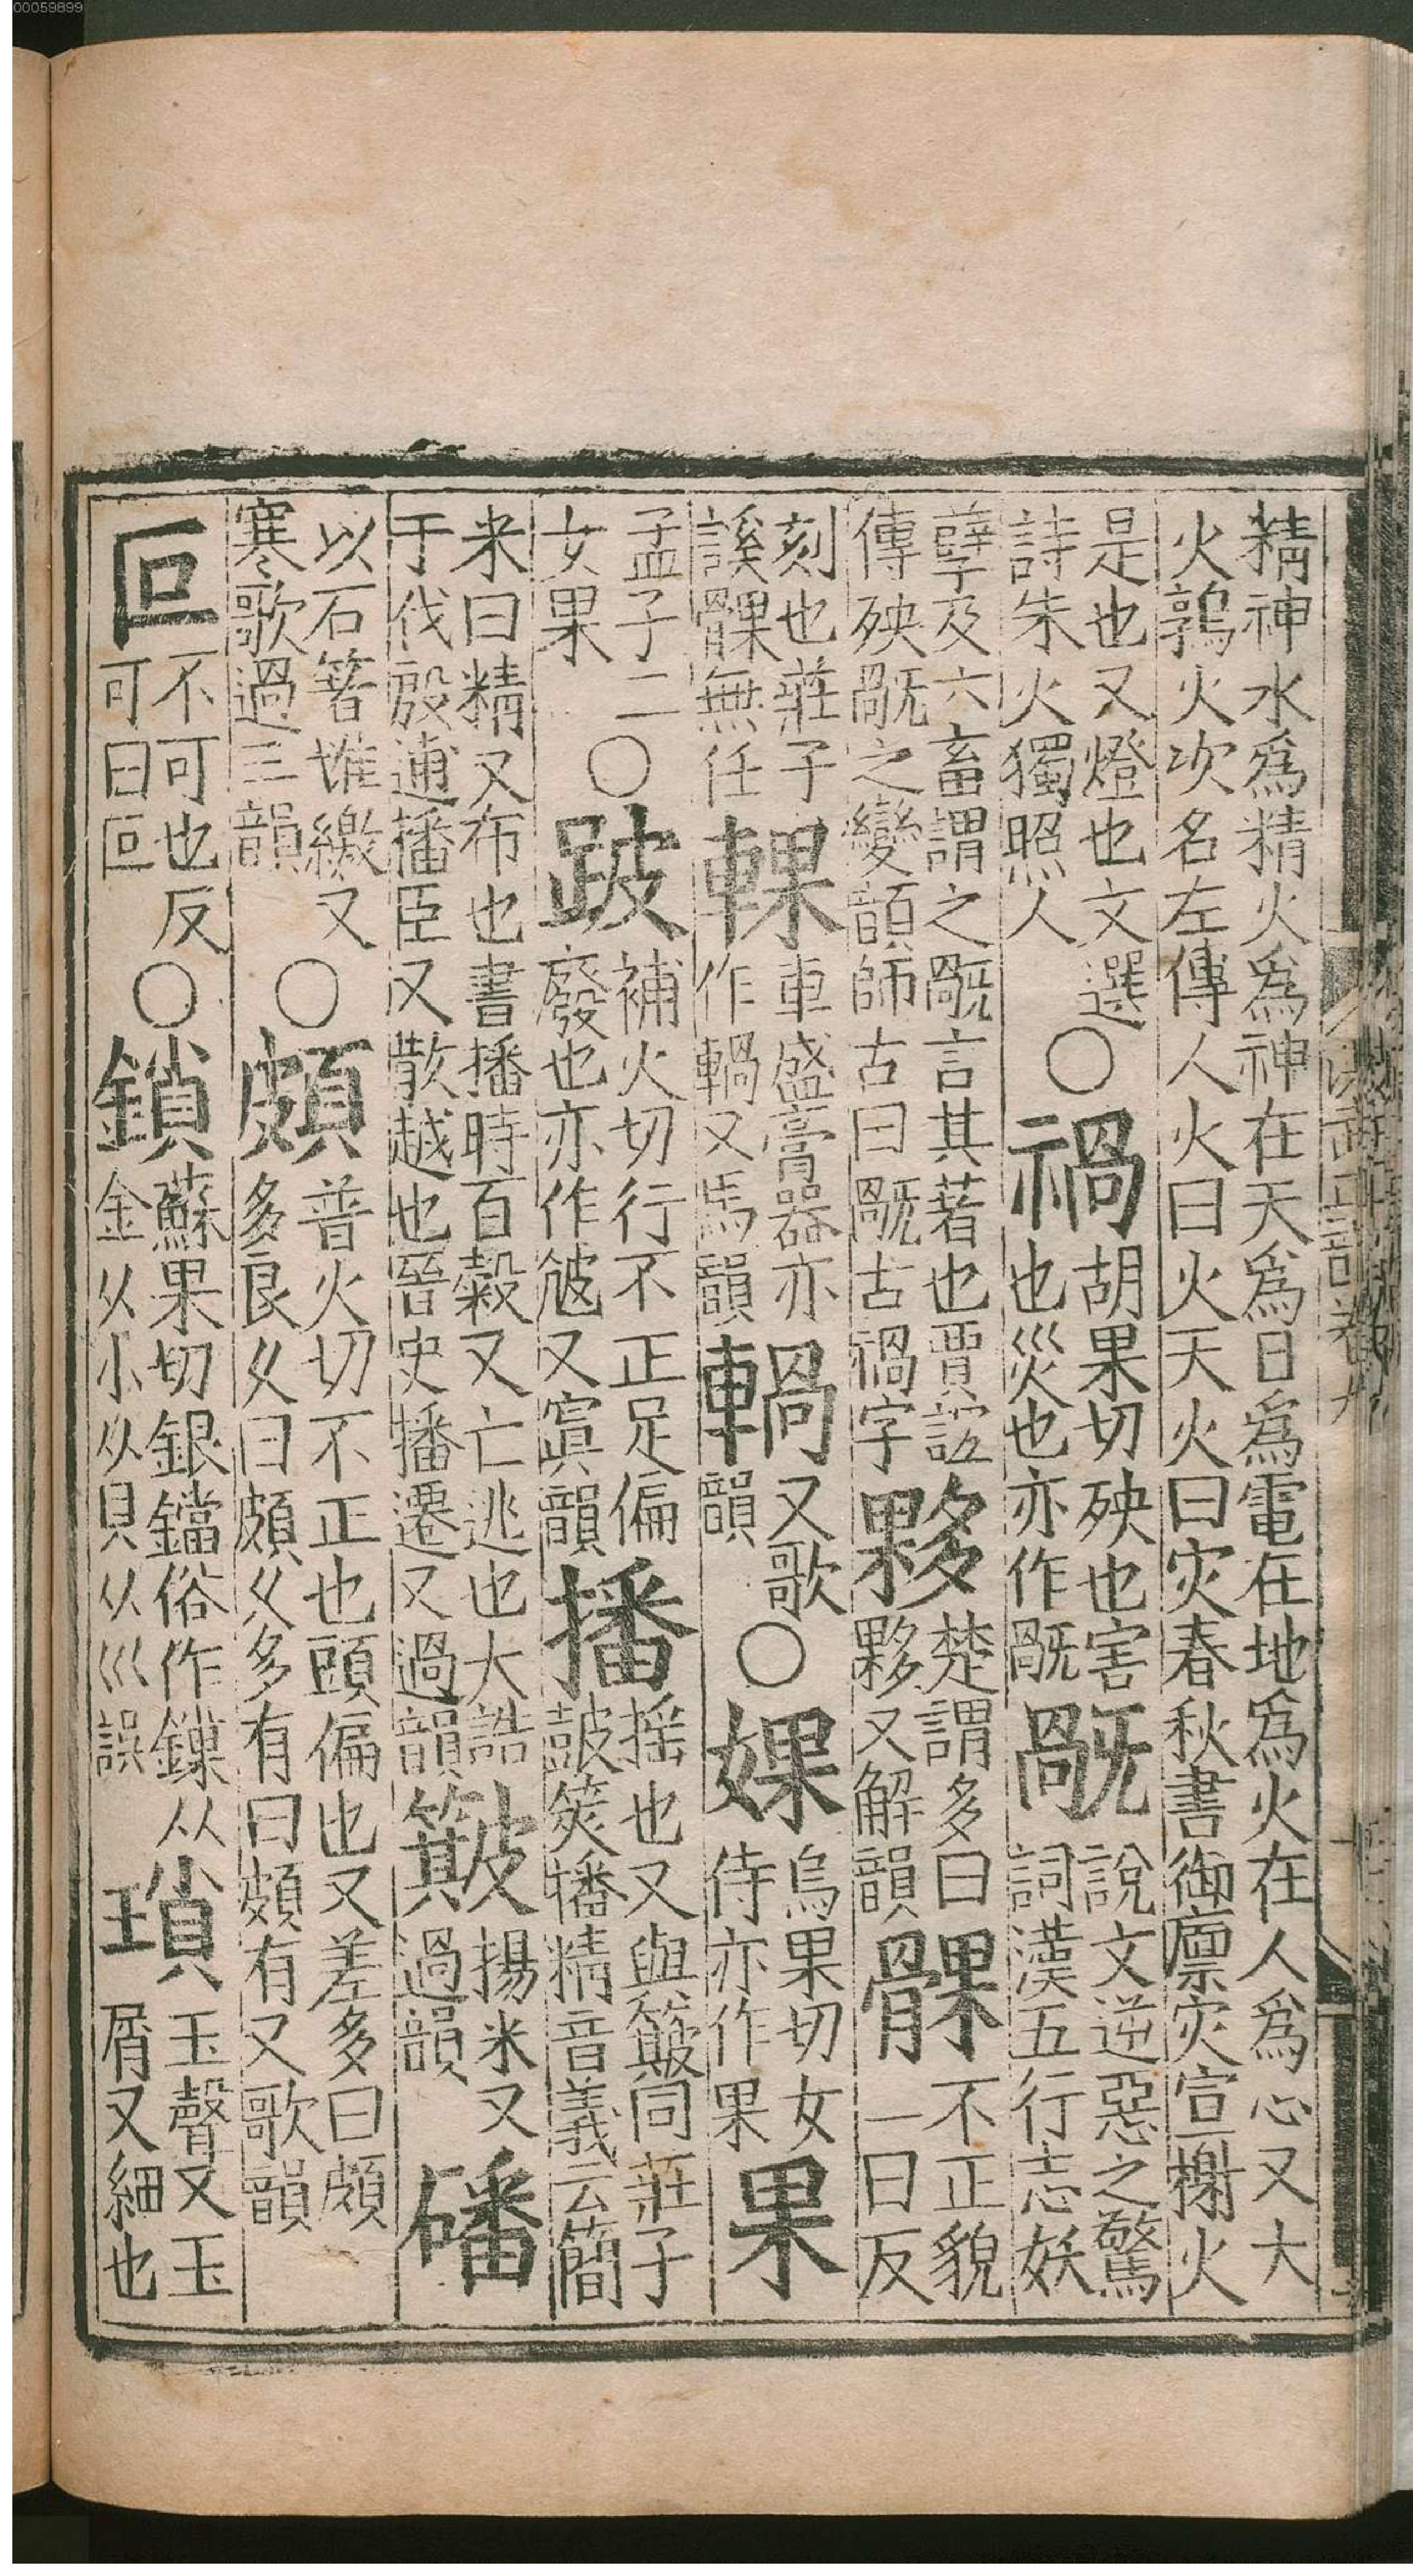 00059899
精神水為精火為神在天為日為電在地為火在人為心又大
火鶉火次名左傳人火曰火天火曰灾春秋書御廩灾宣榭火
是也又燈也文選
詩朱火獨照人
〇禍
胡果切殃也害
也災也亦作𣄸
𣄸
說文逆惡之驚
詞漢五行志妖
孽及六畜謂之𣄸言其著也賈誼
傳殃𣄸之變顔師古曰𣄸古禍字
夥
楚謂多曰
夥又解韻
髁
不正貌
一曰反
刻也莊子
謑髁無任
輠
車盛膏器亦
作輻又馬韻
輻
又歌
韻
〇婐
烏果切女
侍亦作果
果
孟子二
女果
〇跛
補火切行不正足偏
廢也亦作𡰁又寘韻
播
揺也又與簸同莊子
鼓筴播精音義云簡
米曰精又布也書播時百糓又亡逃也大誥
于伐殷逋播臣又散越也晉史播遷又過韻
簸
揚米又
過韻
磻
以石箸堆繳又
寒歌過三韻
〇頗
普火切不正也頭偏也又差多曰頗
多良久曰頗久多有曰頗有又歌韻
叵
不可也反
可曰叵
〇鎖
蘇果切銀鐺俗作鏁从
金从小从貝从巛誤
瑣
玉聲又玉
屑又細也